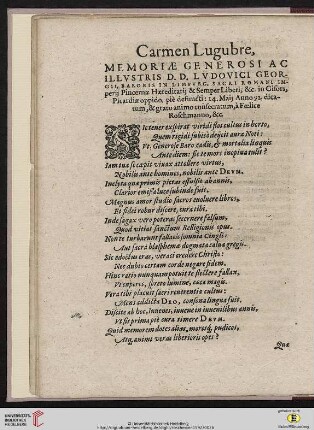 Carmen Lugubre,
MEMORIÆ GENEROSI AC
ILLVSTRIS D.D. LVDOVICI GEOR-
GII, BARONIS IN LIMPVRG, SACRI ROMANI IM-
perij Pincernæ Hæreditarij & Semper Liberi, &c. in Gisors,
Picardiæ oppido, piè defuncti: 14. Maij Anno 92. dica-
tum, & grato animo consecratum, à Felice
Roschmanno, &c.
Sic tener exspirat viridi flos cultus in horto,
Quem rigidi subitò deijcit aura Noti:
Vt Generose Baro cadis, & mortalia linquis
Ante diem: sic te mors inopina tulit?
Iam tua sæcepit vivax attollere virtus,
Nobilis ante homines, nobilis ante DEVM.
Inclyta qua primis pietas effulsit ab annis,
Clarior emissâ luce subinde fuit.
Magnus amor studio sacros evolvere libros,
Et fidei robur discere, cura tibi.
Inde sagax vero poteras secernere falsum,
Quod vitias sanctum Relligionis opus.
Non te turbarunt fallacis somnia Cingli:
Aut sacra blasphemæ dogmata calva gregis.
Sic edoctus eras, veraci credere Christo:
Nec dubio certam corde negare fidem.
Huic ratio nunquam potuit te fistere fallax,
Vt superis, spreto lumine, cæca magis.
Vera tibi placuit sacri reverentia cultus:
Mens addicta DEO, consona lingua fuit.
Discite ab hoc, Iuvenes, iuvene in iuvenilibus annis,
Vt sit prima pie cura timere DEVM.
Quid memorem dotes alias, moresq́ pudicos,
Atq́ animi varias liberioris opes?
Quæ
UNIVERSITÄTS-
BIBLIOTHEK
HEIDELBERG